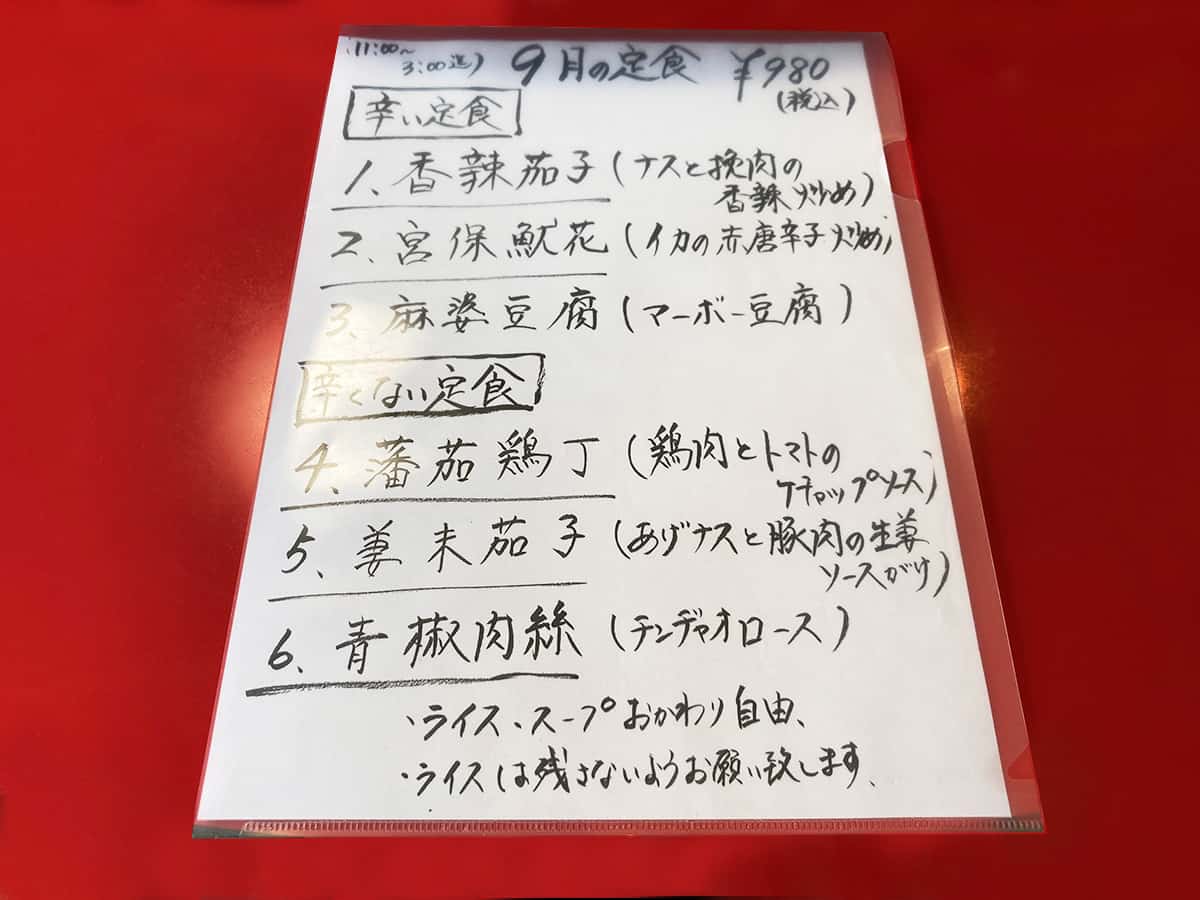 11:00~
3:00迄)
9月の定食 ¥980
(税込)
辛い定食
1、香辣茄子(ナスと挽肉の
香辣炒め)
2、宮保魷花(イカの赤唐辛子炒め)
3、麻婆豆腐(マーボー豆腐)
辛くない定食
4、蕃茄鶏丁(鶏肉とトマトの
ケチャップソース)
5、姜末茄子(あげナスと豚肉の生姜
ソースがけ)
6、青椒肉絲(チンヂャオロース)
・ライス、スープおかわり自由、
・ライスは残さないようお願い致します、